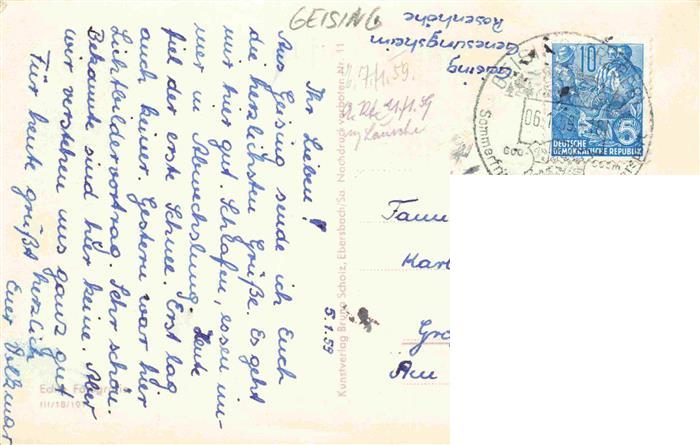 GEISING
Geising
Genesungsheim
Rosenhöhe
5.1.59
Ihr Lieben!
Aus Geising sende ich Euch
die herzlichsten Grüße. Es geht
mir hier gut. Schlafen, essen im-
mer in Abwechslung. Heute
fiel der erste Schnee. Erst lag
auch keiner. Gestern war hier
Lichtbildervortrag. Sehr schön.
Bekannte sind hier keine. Aber
wir verstehen uns ganz gut
Für heute grüßt herzlich
Euer Volkmar
Kunstverlag Bruno Scholz, Ebersbach/Sa. Nachdruck verboten Nr. 11
Echte Fotografie
III/18/197
10
5
DEUTSCHE
DEMOKRATISCHE REPUBLIK
06.1.59
Sommerfri
Fam
Kar
Gro
Am